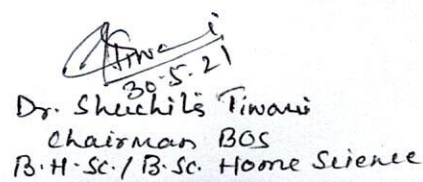 Tiwari
30.5.21
Dr. Shuchita Tiwari
Chairman BOS
B.H.Sc./B.Sc. Home Science